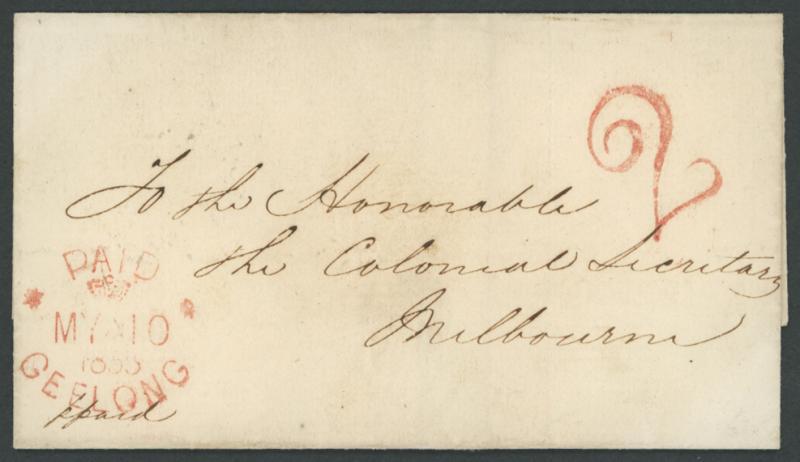 2
To the Honorable
the Colonial Secretary
Melbourne
PAID
MY 10
GEELONG
ppaid